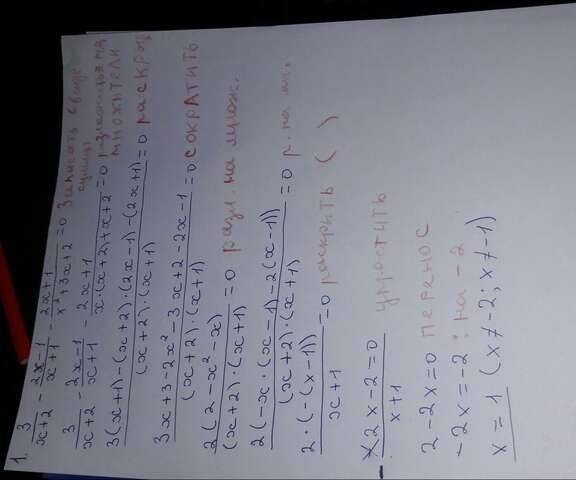 1. 3/(x+2) - (2x-1)/(x+1) - (2x+1)/(x²+3x+2) = 0 Записать в виде суммы
3/(x+2) - (2x-1)/(x+1) - (2x+1)/(x·(x+2)+x+2) = 0 разложить на множители
(3(x+1)-(x+2)·(2x-1)-(2x+1))/((x+2)·(x+1)) = 0 раскры
(3x+3-2x²-3x+2-2x-1)/((x+2)·(x+1)) = 0 сократить
(2(2-x²-x))/((x+2)·(x+1)) = 0 разл. на множ.
(2(-x·(x-1)-2(x-1)))/((x+2)·(x+1)) = 0 р. на мн.
(2·(-(x-1)))/(x+1) = 0 раскрыть ( )
(2x-2=0)/(x+1) упростить
2-2x=0 перенос
-2x=-2 : на -2
x=1 (x≠-2; x≠-1)